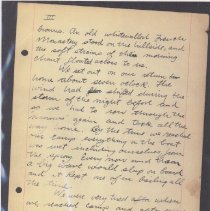 III
browns. An old whitewalled French
Monastery stood on the hillside, and
the soft strains of the morning
chant floated across to us.
We set out on our return
home about seven oclock. The
wind had shifted during the
storm of the night before and
so we had to row through the
narrows again and took all the
way home. By the time we reached
the Camp everything in the boat
was wet including ourselves from
the spray. Every now and then
a big wave would slop on board
and it kept one of us bailing all
the time.
We were very wet when
we reached camp and